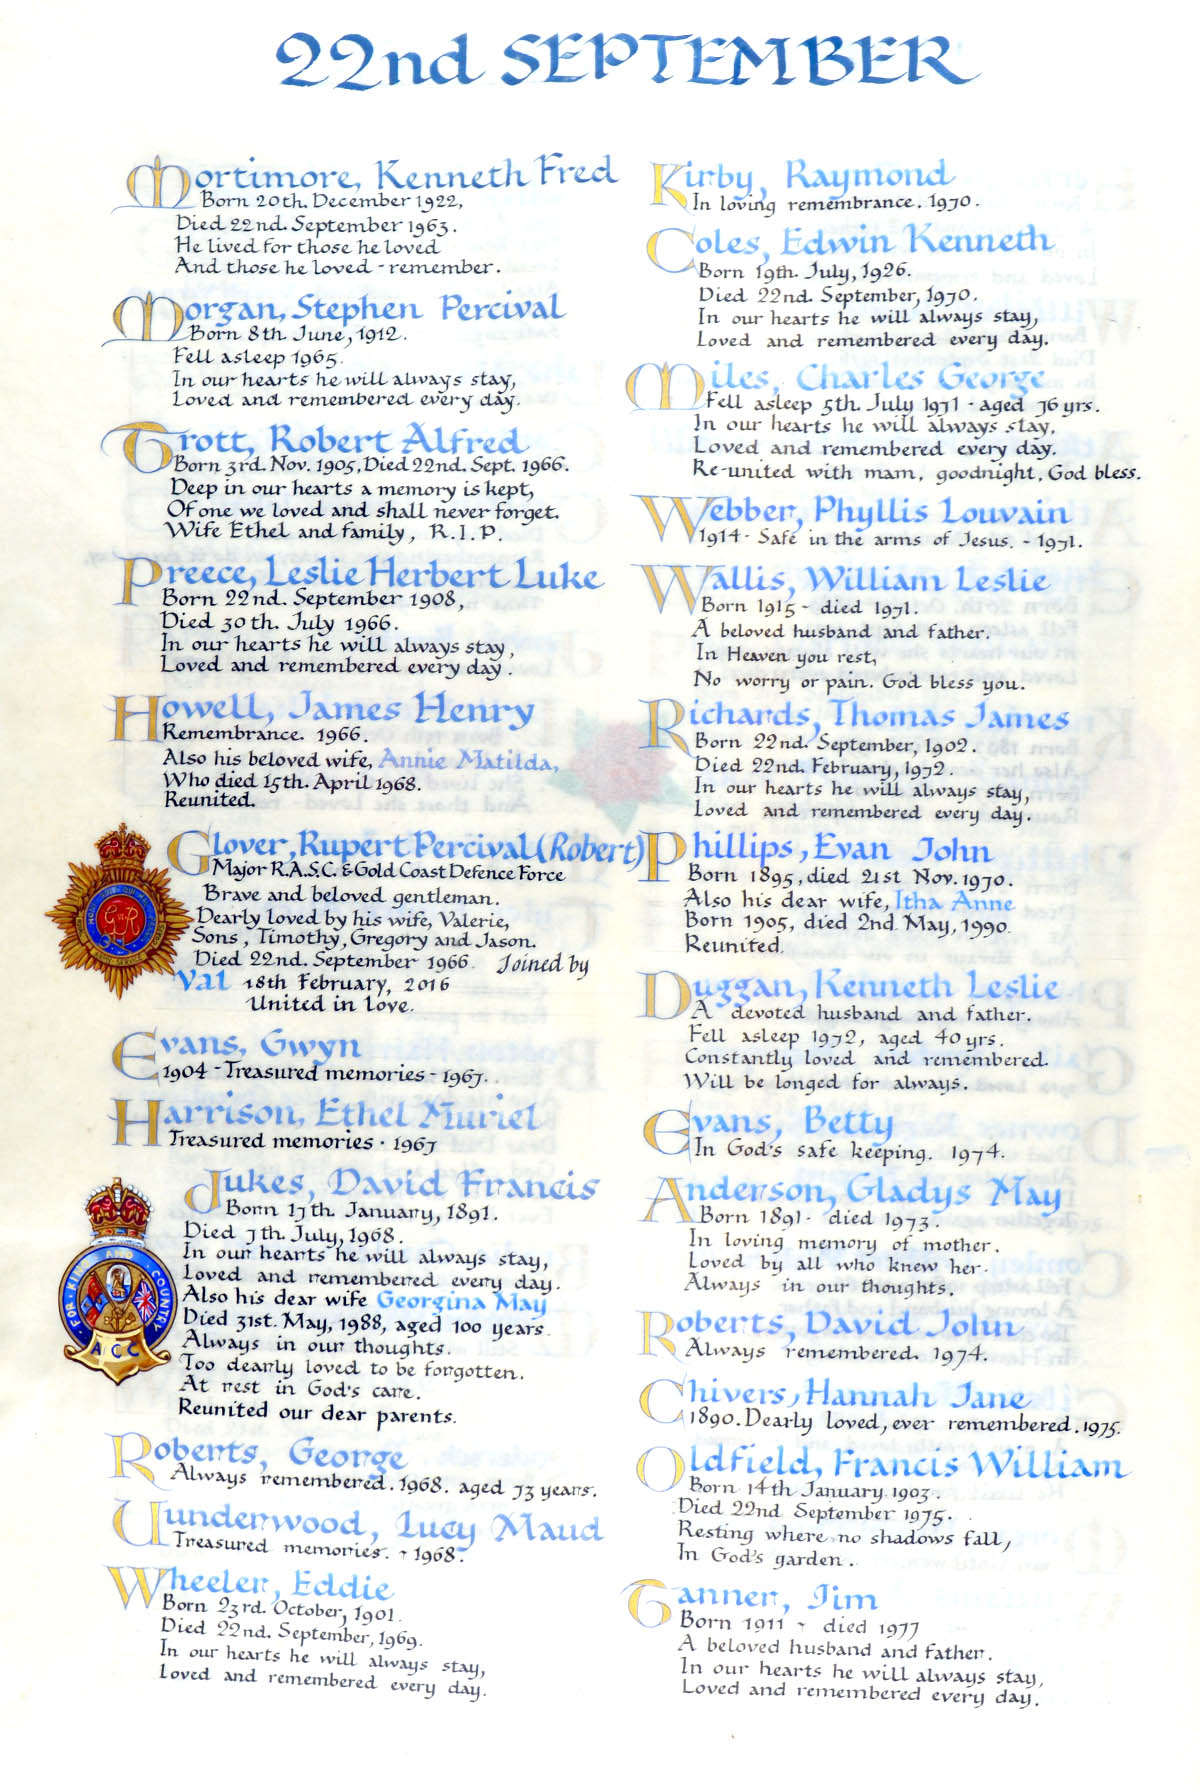 22nd SEPTEMBER
Mortimore, Kenneth Fred
Born 20th. December 1922,
Died 22nd. September 1963.
He lived for those he loved
And those he loved - remember.
Morgan, Stephen Percival
Born 8th. June, 1912.
Fell asleep 1965.
In our hearts he will always stay,
Loved and remembered every day.
Trott, Robert Alfred
Born 3rd. Nov. 1905, Died 22nd. Sept. 1966.
Deep in our hearts a memory is kept,
Of one we loved and shall never forget.
Wife Ethel and family, R.I.P.
Preece, Leslie Herbert Luke
Born 22nd. September 1908,
Died 30th. July 1966.
In our hearts he will always stay,
Loved and remembered every day.
Howell, James Henry
Remembrance. 1966.
Also his beloved wife, Annie Matilda,
Who died 15th. April 1968.
Reunited.
Glover, Rupert Percival (Robert)
Major R.A.S.C. & Gold Coast Defence Force
Brave and beloved gentleman.
Dearly loved by his wife, Valerie,
Sons, Timothy, Gregory and Jason.
Died 22nd. September 1966. Joined by
Val 18th February, 2016
United in love.
Evans, Gwyn
1904 - Treasured memories - 1967.
Harrison, Ethel Muriel
Treasured memories · 1967
Jukes, David Francis
Born 17th. January, 1891.
Died 7th. July, 1968.
In our hearts he will always stay,
Loved and remembered every day.
Also his dear wife Georgina May
Died 31st. May, 1988, aged 100 years.
Always in our thoughts.
Too dearly loved to be forgotten.
At rest in God's care.
Reunited our dear parents.
FOR · KING AND COUNTRY
ACC
Roberts, George
Always remembered. 1968. aged 73 years.
Uunderwood, Lucy Maud
Treasured memories. - 1968.
Wheeler, Eddie
Born 23rd. October, 1901.
Died 22nd. September, 1969.
In our hearts he will always stay,
Loved and remembered every day.
Kirby, Raymond
In loving remembrance. 1970.
Coles, Edwin Kenneth
Born 19th. July, 1926.
Died 22nd. September, 1970.
In our hearts he will always stay,
Loved and remembered every day.
Miles, Charles George
Fell asleep 5th. July 1971 - aged 76 yrs.
In our hearts he will always stay,
Loved and remembered every day.
Re-united with mam, goodnight, God bless.
Webber, Phyllis Louvain
1914 - Safe in the arms of Jesus. - 1971.
Wallis, William Leslie
Born 1915 - died 1971.
A beloved husband and father.
In Heaven you rest,
No worry or pain. God bless you.
Richards, Thomas James
Born 22nd. September, 1902.
Died 22nd. February, 1972.
In our hearts he will always stay,
Loved and remembered every day.
Phillips, Evan John
Born 1895, died 21st Nov. 1970.
Also his dear wife, Itha Anne
Born 1905, died 2nd May, 1990.
Reunited.
Duggan, Kenneth Leslie
A devoted husband and father.
Fell asleep 1972, aged 40 yrs.
Constantly loved and remembered.
Will be longed for always.
Evans, Betty
In God's safe keeping. 1974.
Anderson, Gladys May
Born 1891 - died 1973.
In loving memory of mother.
Loved by all who knew her.
Always in our thoughts.
Roberts, David John
Always remembered. 1974.
Chivers, Hannah Jane
1890. Dearly loved, ever remembered. 1975.
Oldfield, Francis William
Born 14th January 1903.
Died 22nd September 1975.
Resting where no shadows fall,
In God's garden.
Tanner, Jim
Born 1911 - died 1977
A beloved husband and father.
In our hearts he will always stay,
Loved and remembered every day.